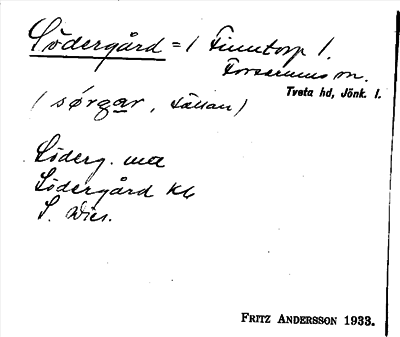 Södergård = 1 Finntorp 1.
Forserums sn.
Tveta hd, Jönk. l.
(sørgar, sällan)
Söderg. med
Södergård Kb
S. Dics.
FRITZ ANDERSSON 1933.